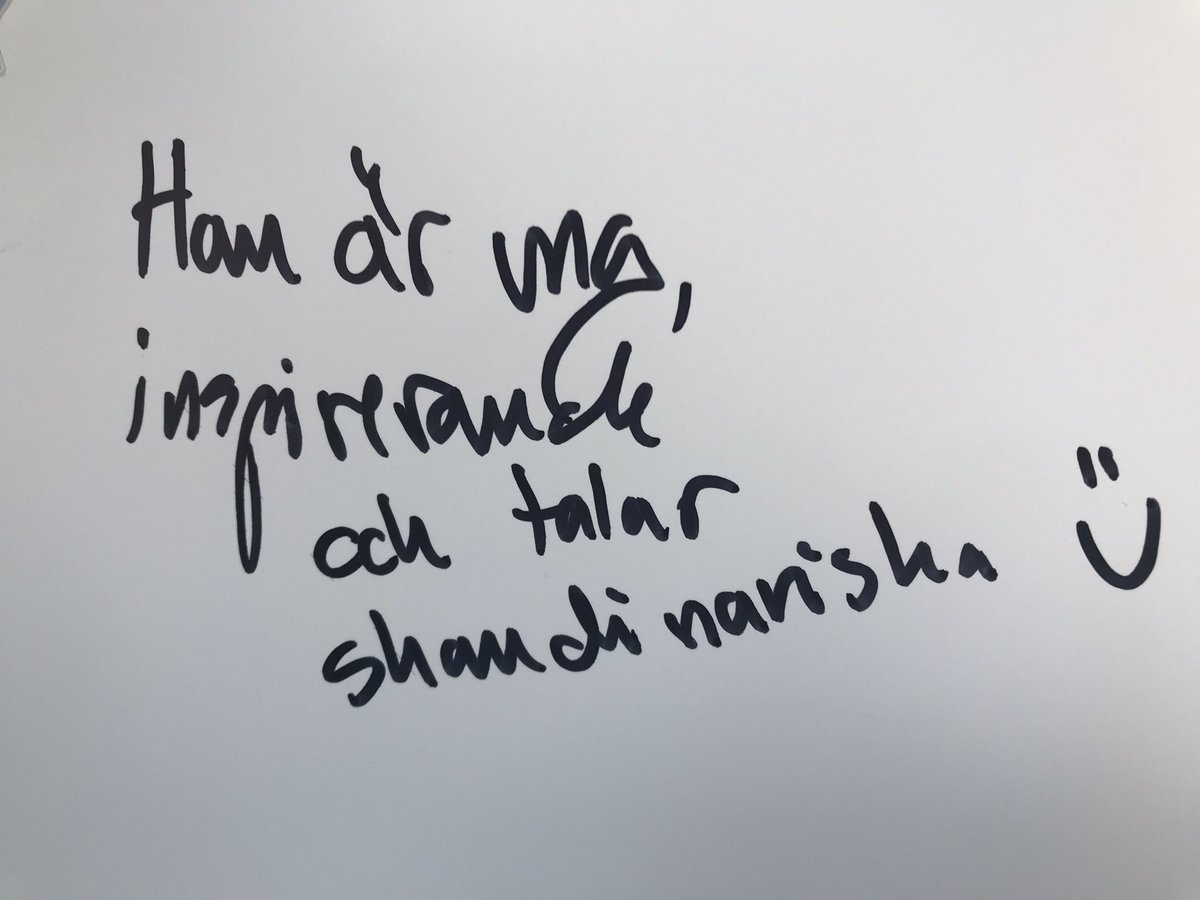 Han är ung,
inspirerande
och talar
skandinaviska